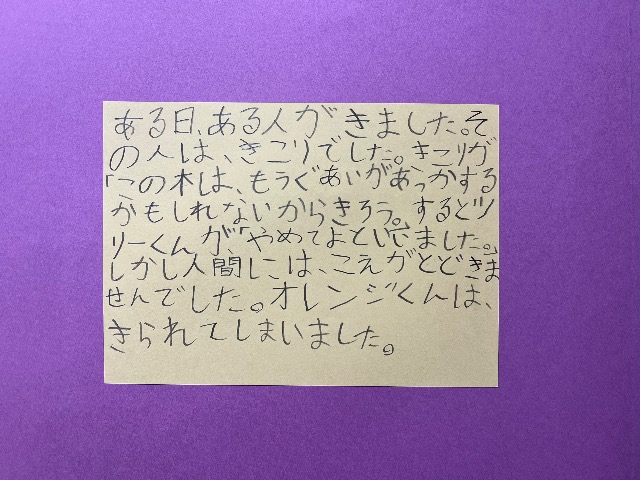 ある日、ある人がきました。そ
の人は、きこりでした。きこりが
「この木は、もうぐあいがあっかする
かもしれないからきろう。するとツ
リーくんが、「やめてよと言いました。」
しかし人間には、こえがとどきま
せんでした。オレンジくんは、
きられてしまいました。